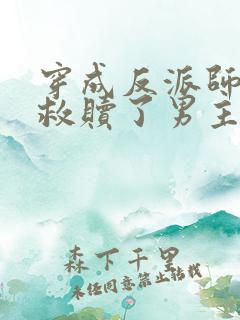 穿成反派師
救贖了男主
森下千里
未经同意禁止转载